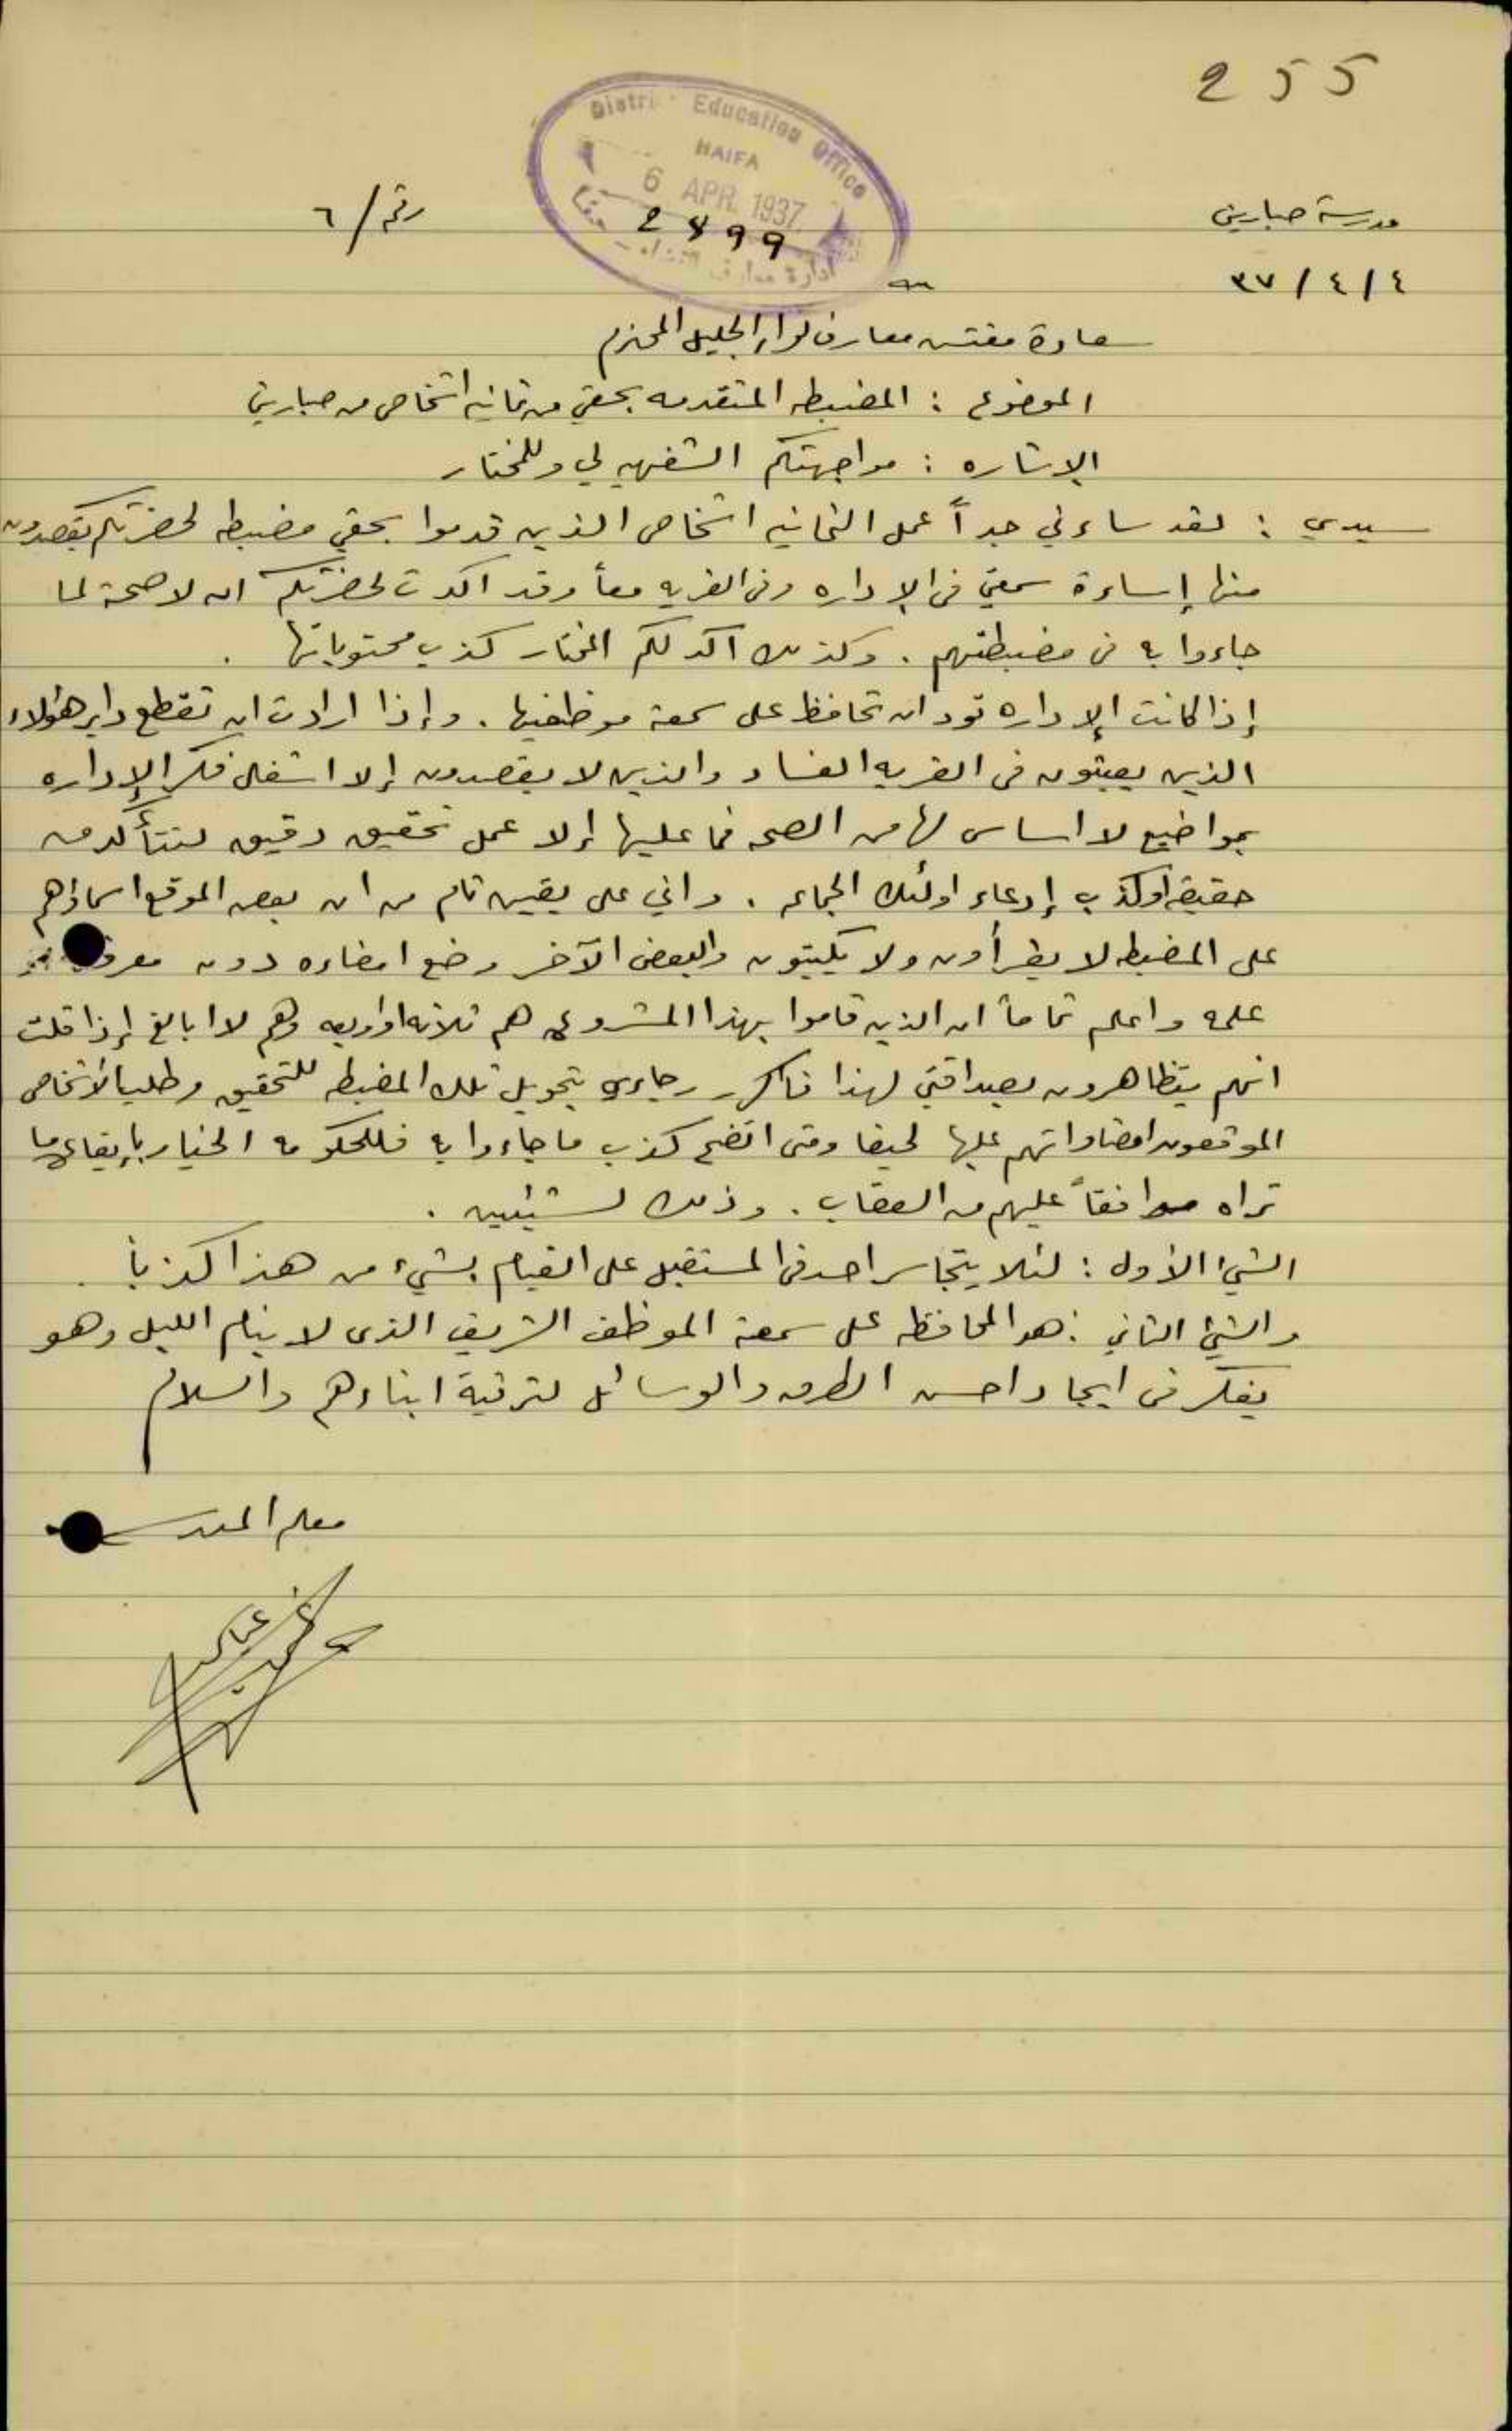 255
District Education Office
HAIFA
6 APR. 1937
2899
ادارة معارف
مدرسة صبارين
رقم / ٦
٤ / ٤ / ٣٧
سعادة مفتش معارف لواء الجليل المحترم
الموضوع : المضبطه المتقدمه بحقي من ثمانيه اشخاص من صبارين
الإشاره : مواجهتكم الشفهيه لي وللمختار
سيدي : لقد ساءني جداً عمل الثمانيه اشخاص الذين قدموا بحقي مضبطه لحضرتكم يقصدون
منها إساءة سمعتي في الإداره وفي القريه معاً وقد اكدت لحضرتكم ان لا صحة لما
جاءوا به في مضبطتهم . وكذلك اكد لكم المختار كذب محتوياتها .
إذا كانت الإداره تود ان تحافظ على سمعة موظفيها . وإذا ارادت ان تقطع دابر هؤلاء
الذين يعيثون في القريه الفساد والذين لا يقصدون إلا اشغال فكر الإداره
بمواضيع لا اساس لها من الصحه فما عليها إلا عمل تحقيق دقيق لتتأكد من
حقيقة أو كذب إدعاء اولئك الجماعه . واني على يقين تام من ان بعض الموقع اسماؤهم
على المضبطه لا يقرأون ولا يكتبون والبعض الآخر وضع امضاءه دون
علمه واعلم تماماً ان الذين قاموا بهذا المشروع هم ثلاثه او اربعه وهم لا ابالغ إذا قلت
انهم يتظاهرون بصداقتي لهذا فاكرر رجاءي بتحويل تلك المضبطه للتحقيق وطلب الأشخاص
الموقعون امضاواتهم عليها لحيفا ومتى اتضح كذب ما جاءوا به فللحكومه الخيار بإيقاع ما
تراه موافقاً عليهم من العقاب . وذلك لشيئين .
الشيء الأول : لئلا يتجاسر احد في المستقبل على القيام بشيء من هذا كذباً .
والشيء الثاني : هو المحافظه على سمعة الموظف الشريف الذي لا ينام الليل وهو
يفكر في ايجاد احسن الطرق والوسائل لترقية ابناءهم والسلام
معلم المدرسة